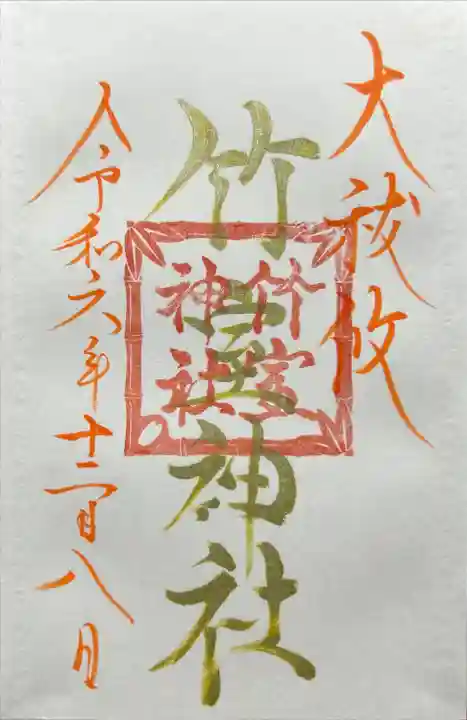 大祓攸
竹室神社
竹室
神社
入令和六年十二月八日